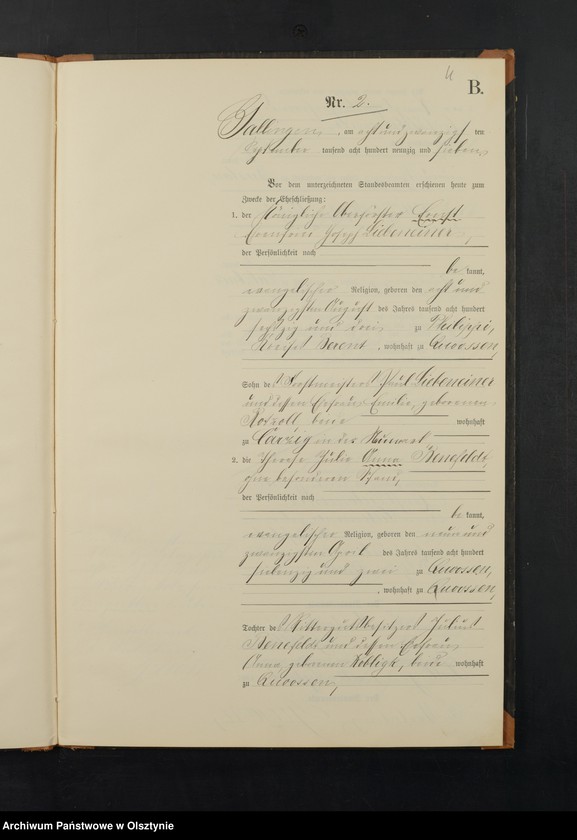 4
B.
Nr. 2.
am acht und zwanzigsten
September tausend acht hundert neunzig und sieben
Vor dem unterzeichneten Standesbeamten erschienen heute zum
Zwecke der Eheschließung:
1. der Königliche Oberförster Ernst
Joseph Liebeneiner,
der Persönlichkeit nach
be kannt,
evangelischer Religion, geboren den acht und
zwanzigsten August des Jahres tausend acht hundert
sechzig und drei zu Philippi,
Kreises Berent, wohnhaft zu Quoossen,
Sohn des Forstmeisters Paul Liebeneiner
und dessen Ehefrau Emilie, geborenen
beide wohnhaft
zu in der Neumark
2. die Therese Julie Anna Benefeldt,
ohne besonderen Stand,
der Persönlichkeit nach
be kannt,
evangelischer Religion, geboren den neun und
zwanzigsten April des Jahres tausend acht hundert
siebenzig und zwei zu Quoossen,
, wohnhaft zu Quoossen,
Tochter des Rittergutsbesitzers Julius
Benefeldt und dessen Ehefrau
Anna, geborenen Kobligk, beide wohnhaft
zu Quoossen,
Archiwum Państwowe w Olsztynie